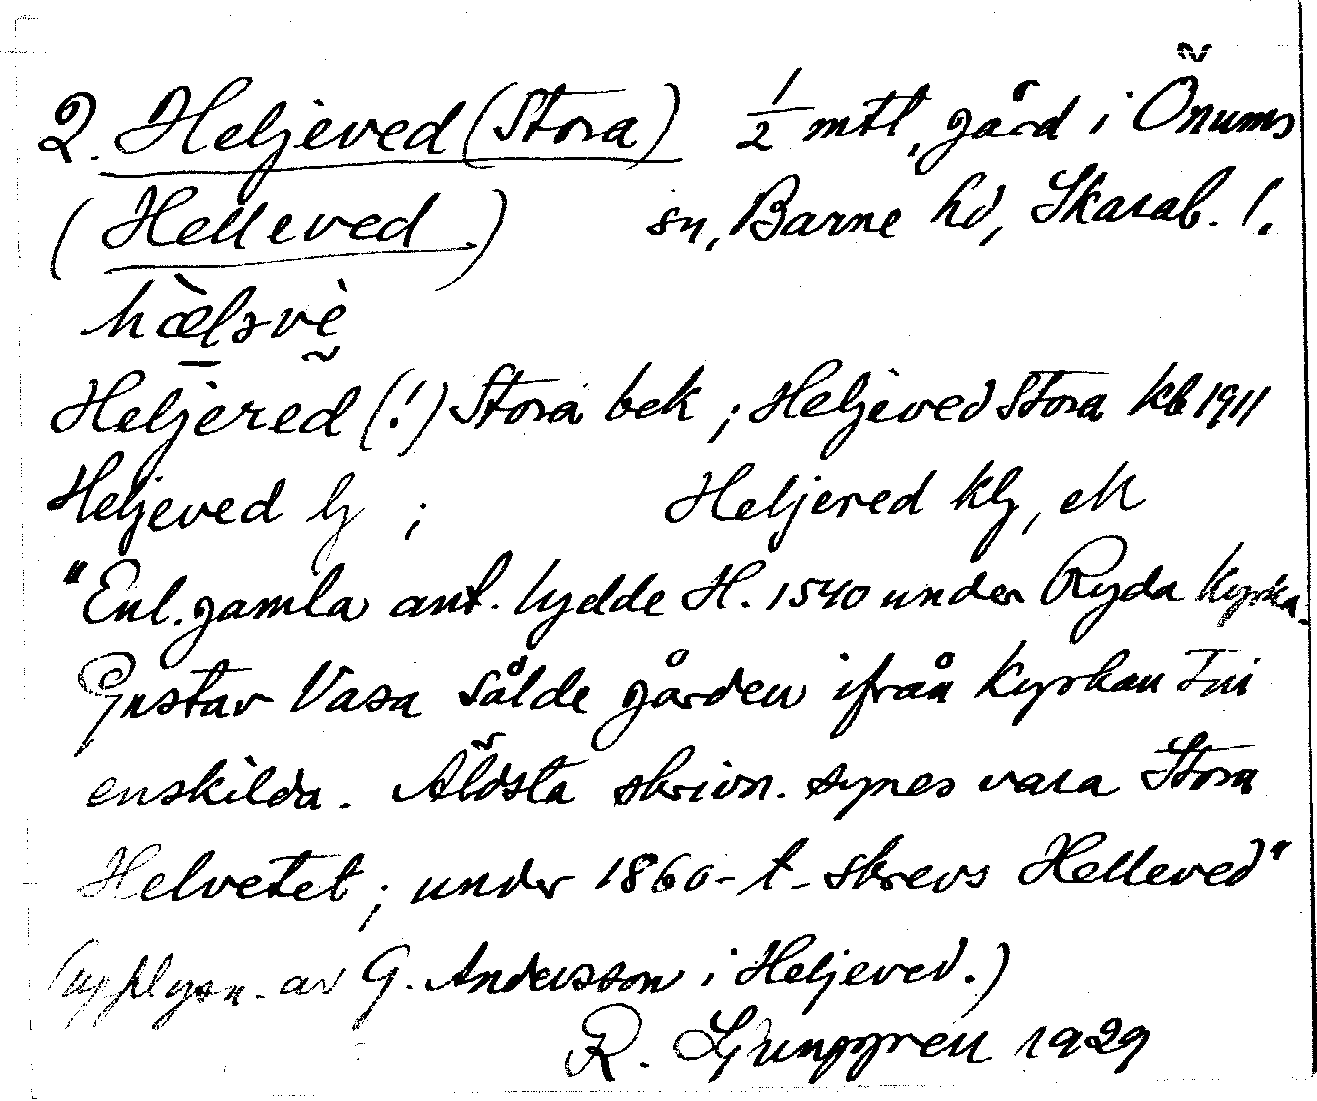 2. Heljeved (Stora) 1/2 mtl, gård i Önums
(Helleved.) sn, Barne hd, Skarab. l.
hæ̀lsvè
Heljered (!) Stora bek ; Heljeved Stora kb 1911
Heljeved lj ; Heljered klj, ek
"Enl. gamla ant. lydde H. 1540 under Ryda kyrka.
Gustav Vasa sålde gården ifrån kyrkan till
enskilda. Äldsta skrivn. synes vara Stora
Helvetet ; under 1860-t- skrevs Helleved"
(upplysn. av G. Andersson i Heljeved.)
R. Ljunggren 1929